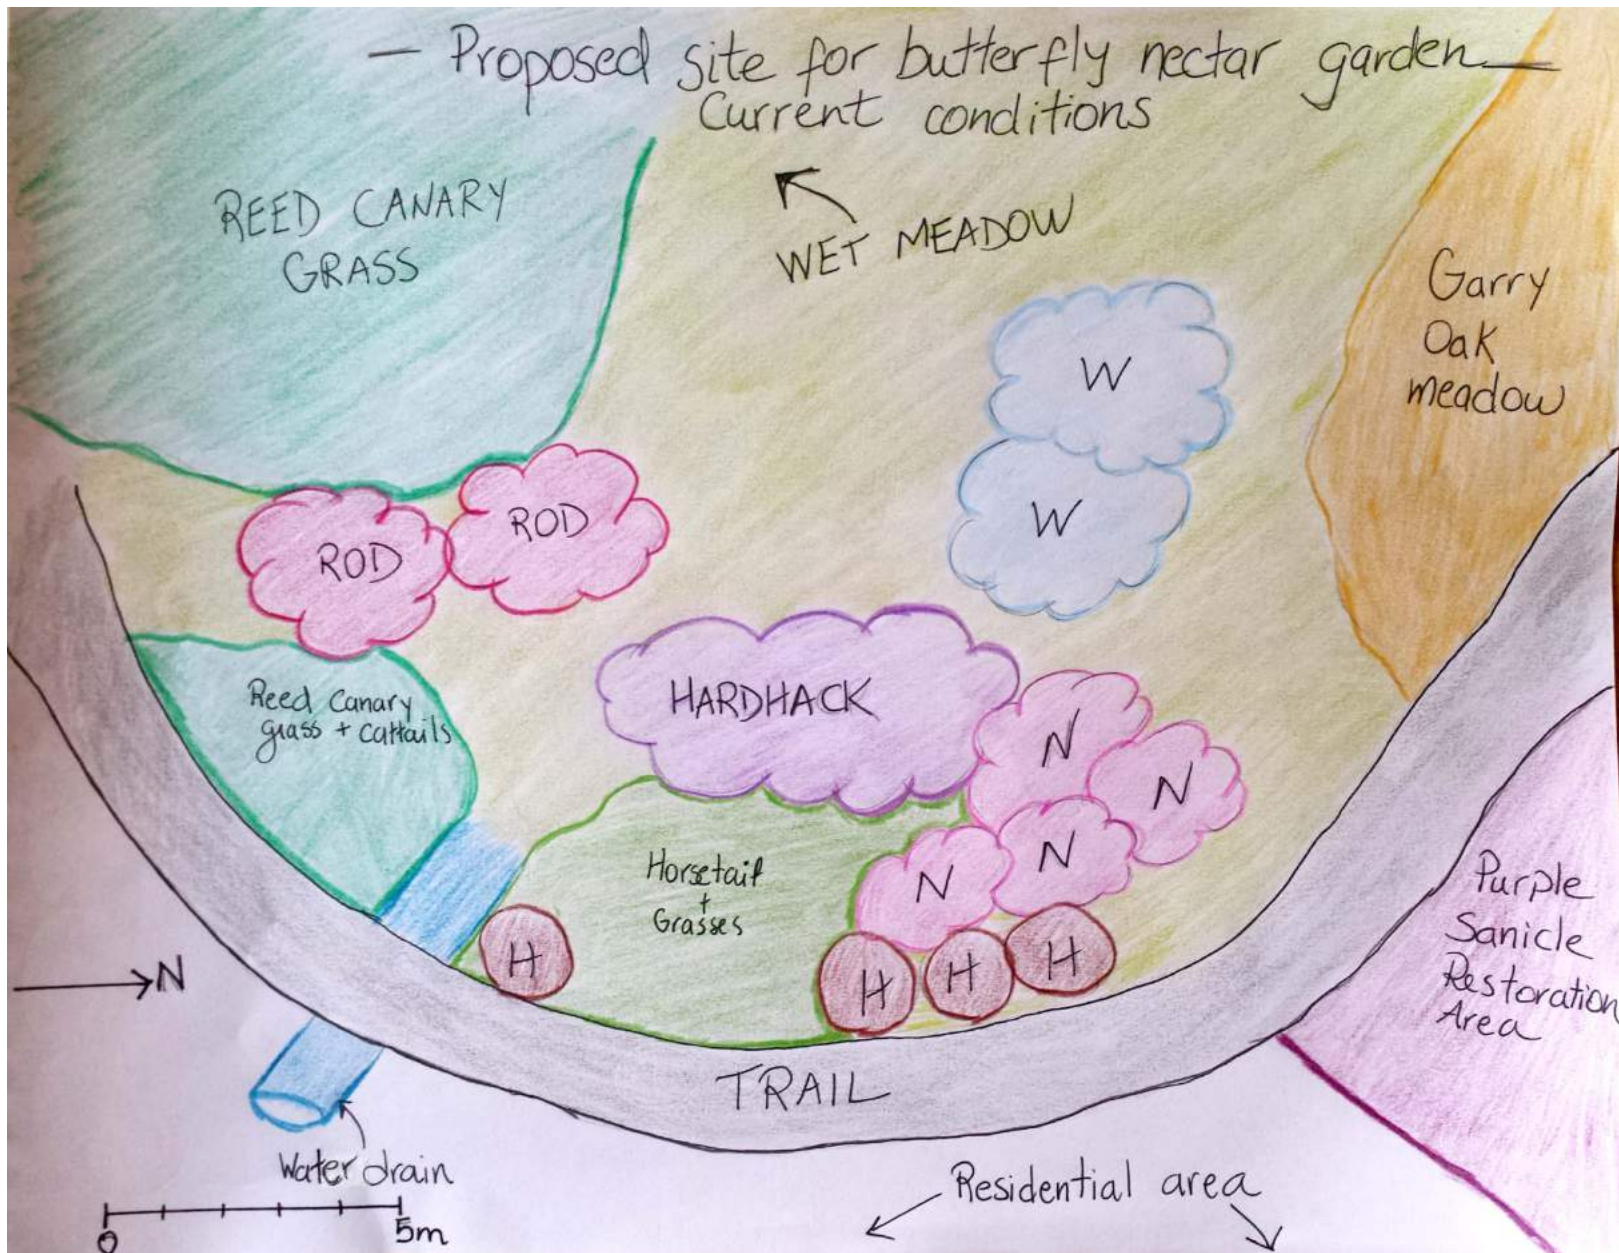 — Proposed site for butterfly nectar garden —
Current conditions
REED CANARY
GRASS
WET MEADOW
Garry
Oak
meadow
W
W
ROD
ROD
HARDHACK
Reed Canary
grass + cattails
N
N
N
N
Horsetail
+
Grasses
H
H
H
H
Purple
Sanicle
Restoration
Area
N
TRAIL
Water drain
Residential area
0
5m